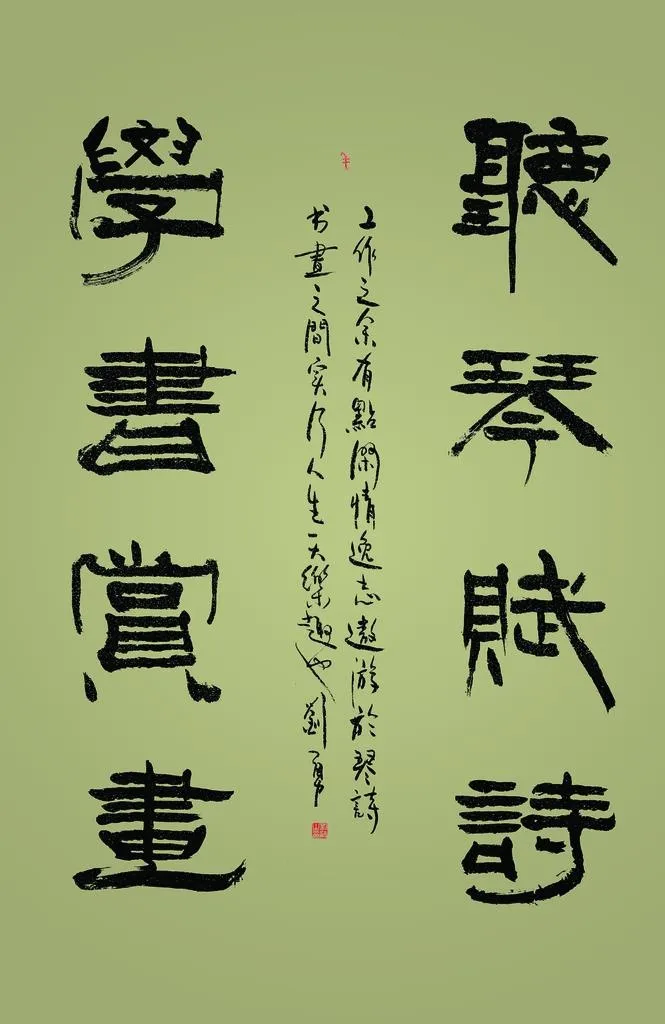 聽琴賦詩
學書賞畫
工作之余有點閑情逸志遨游於琴詩
书畫之間实乃人生一大樂趣也劉勇